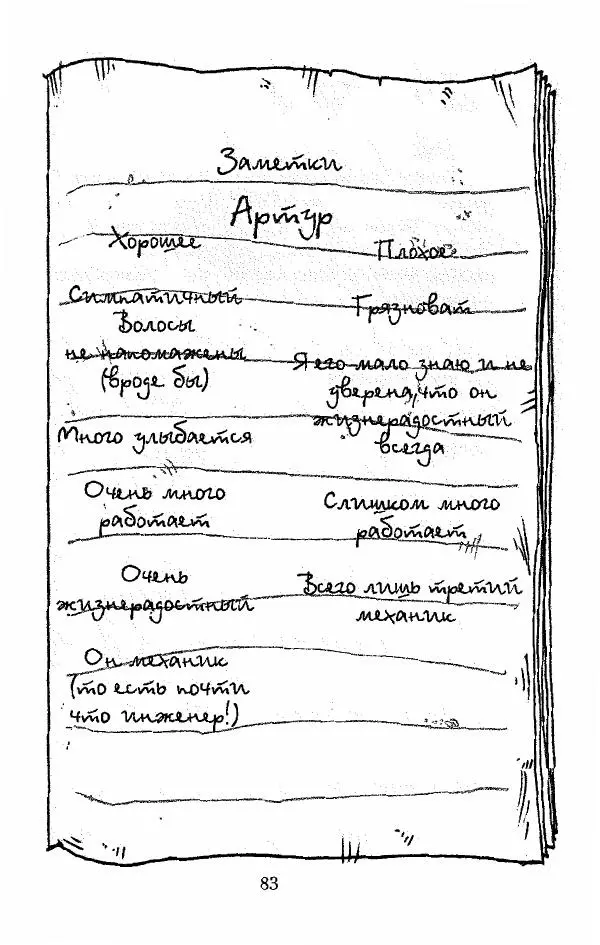 Заметки
Артур
Хорошее
Плохое
Симпатичный
Грязноват
Волосы
не напомажены
(вроде бы)
Я его мало знаю и не
уверена, что он
жизнерадостный
всегда
Много улыбается
Очень много
работает
Слишком много
работает
Очень
жизнерадостный
Всего лишь третий
механик
Он механик
(то есть почти
что инженер!)
83